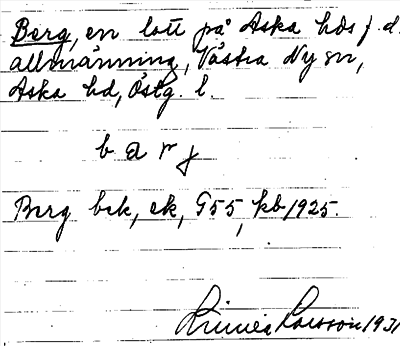 Berg, en lott på Aska hds f. d.
allmänning, Västra Ny sn,
Aska hd, Östg. l.
b a r j
Berg bek, ek, G55, kb 1925.
Linnéa Larsson 1931